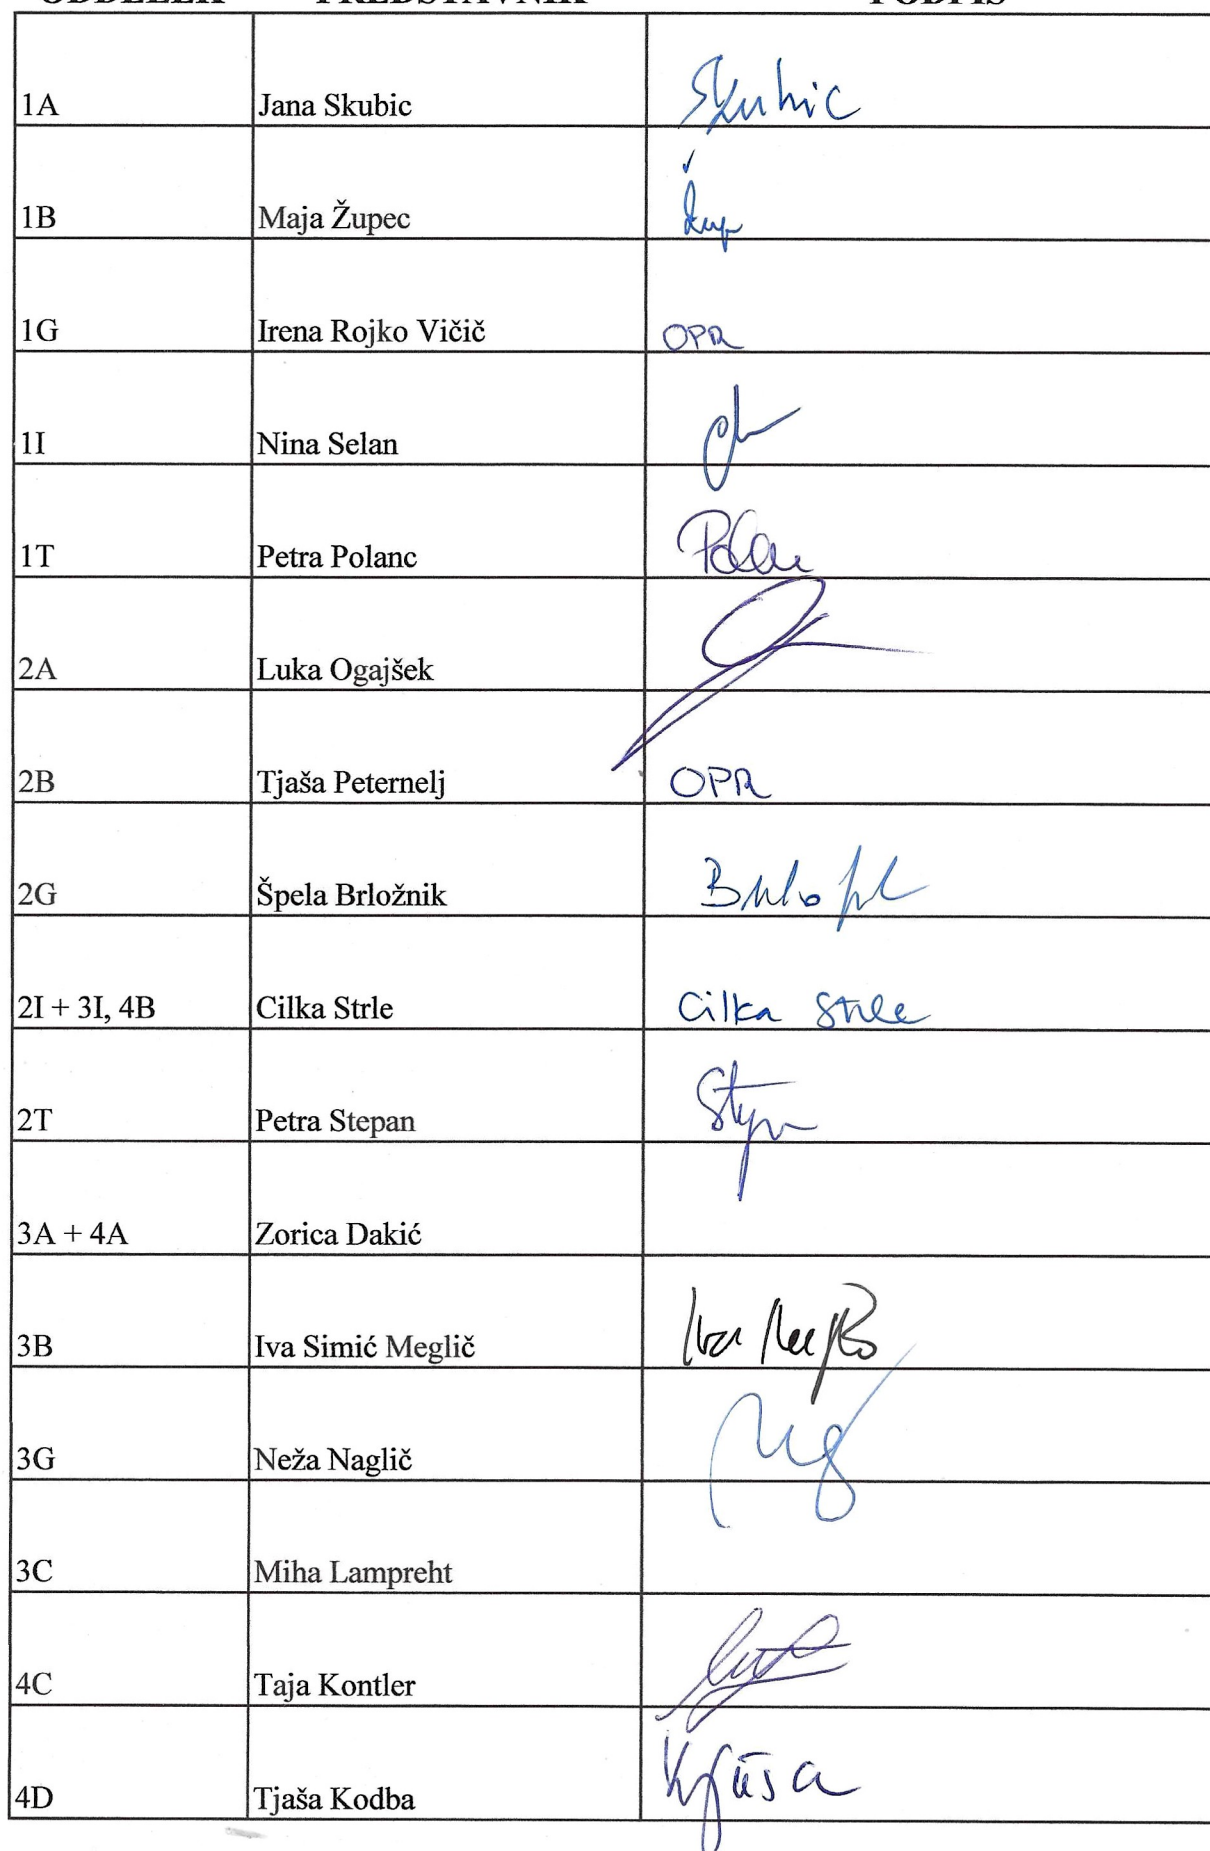 ODDELEK PREDSTAVNIK PODPIS
1A Jana Skubic Skubic
1B Maja Župec Žup
1G Irena Rojko Vičič OPR
1I Nina Selan
1T Petra Polanc
2A Luka Ogajšek
2B Tjaša Peternelj OPR
2G Špela Brložnik
2I + 3I, 4B Cilka Strle Cilka Strle
2T Petra Stepan
3A + 4A Zorica Dakić
3B Iva Simić Meglič Iva
3G Neža Naglič
3C Miha Lampreht
4C Taja Kontler
4D Tjaša Kodba